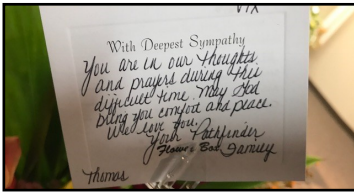 With Deepest Sympathy
You are in our thoughts
and prayers during this
difficult time. May God
bring you comfort and peace.
We love you.
Your Pathfinder
Flower Box Family
Thomas